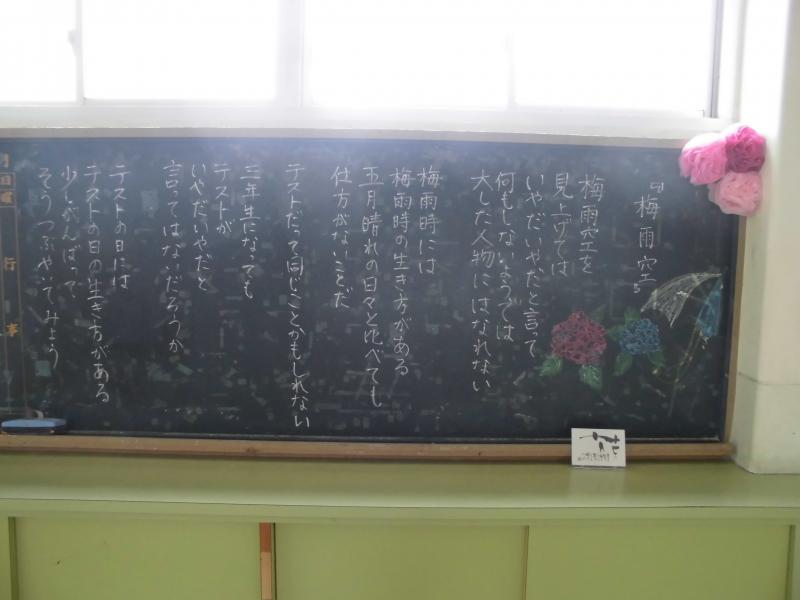 『梅雨空』
梅雨空を
見上げては
いやだいやだと言って
何もしないようでは
大した人物にはなれない
梅雨時には
梅雨時の生き方がある
五月晴れの日々と比べても
仕方がないことだ
テストだって同じことかもしれない
三年生になっても
テストが
いやだいやだと
言ってはいないだろうか
テストの日には
テストの日の生き方がある
少しがんばって
そうつぶやいてみよう
月
日
曜
行
事